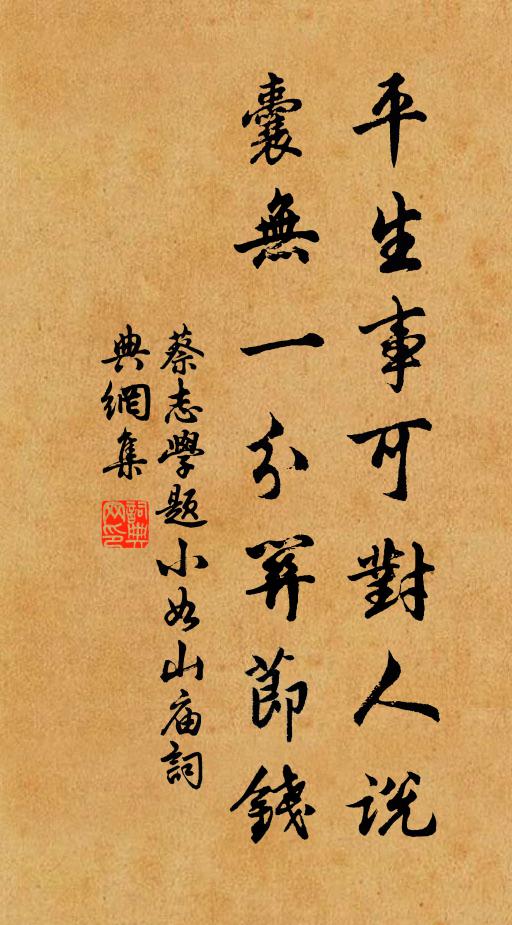 平生事可對人說
囊無一分關節錢
蔡志學題小姑山庙詞
典網集
詞典
网印